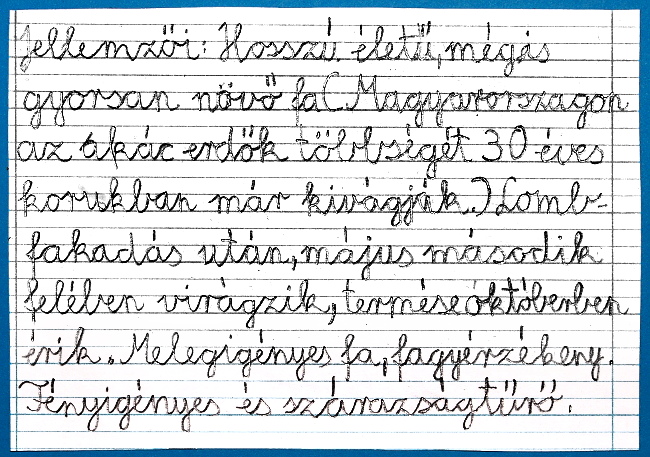 Jellemzői: Hosszú életű, mégis
gyorsan növő fa (Magyarországon
az akác erdők többségét 30 éves
korukban már kivágják.) Lomb-
fakadás után, május második
felében virágzik, termése októberben
érik. Melegigényes fa, fagyérzékeny.
Fényigényes és szárazságtűrő.